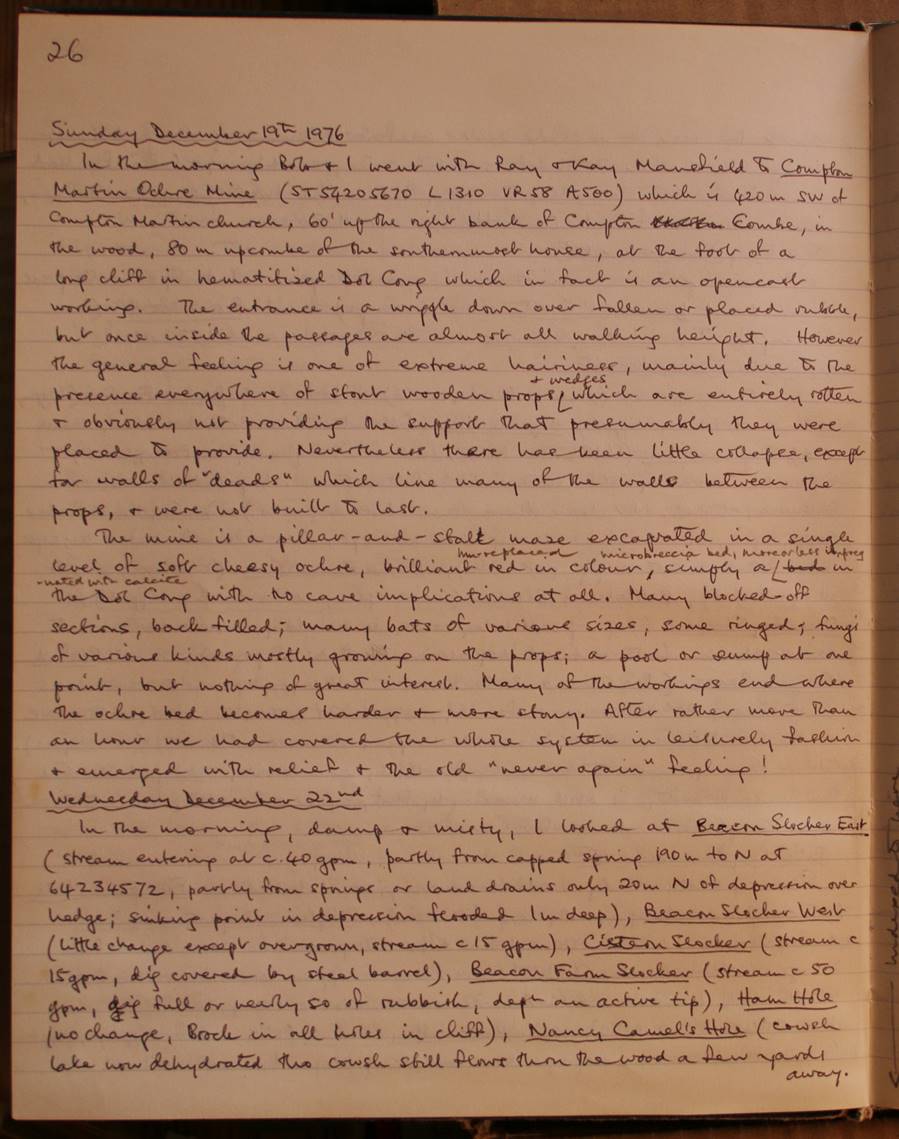 26
Sunday December 19th 1976
In the morning Bob & I went with Ray & Kay Mansfield to Compton
Martin Ochre Mine (ST54205670 L1310 VR58 A500) which is 420m SW of
Compton Martin church, 60' up the right bank of Compton Combe, in
the wood, 80 m upcombe of the southernmost house, at the foot of a
long cliff in hematitised Dol Cong which in fact is an opencast
working. The entrance is a wriggle down over fallen or placed rubble,
but once inside the passages are almost all walking height. However
the general feeling is one of extreme hairiness, mainly due to the
+ wedges
presence everywhere of stout wooden props which are entirely rotten
& obviously not providing the support that presumably they were
placed to provide. Nevertheless there has been little collapse, except
for walls of "deads" which line many of the walls between the
props, & were not built to last.
The mine is a pillar-and-stall maze excavated in a single
microbreccia bed, more or less impreg
level of soft cheesy ochre, brilliant red in colour, simply a bed in
-nated with calcite
the Dol Cong with no cave implications at all. Many blocked-off
sections, back filled; many bats of various sizes, some ringed; fungi
of various kinds mostly growing on the props; a pool or sump at one
point, but nothing of great interest. Many of the workings end where
the ochre bed becomes harder & more stony. After rather more than
an hour we had covered the whole system in leisurely fashion
& emerged with relief & the old "never again" feeling!
Wednesday December 22nd
In the morning, damp & misty, I looked at Beacon Slocker East
(stream entering at c.40 gpm, partly from capped spring 190m to N at
64234572, partly from springs or land drains only 20m N of depression over
hedge; sinking point in depression flooded 1m deep), Beacon Slocker West
(little change except overgrown, stream c 15 gpm), Cistern Slocker (stream c
15gpm, dig covered by steel barrel), Beacon Farm Slocker (stream c 50
gpm, dig full or nearly so of rubbish, depn an active tip), Ham Hole
(no change, Brock in all holes in cliff), Nancy Camel's Hole (cowsh
lake now dehydrated tho cowsh still flows thru the wood a few yards
away.